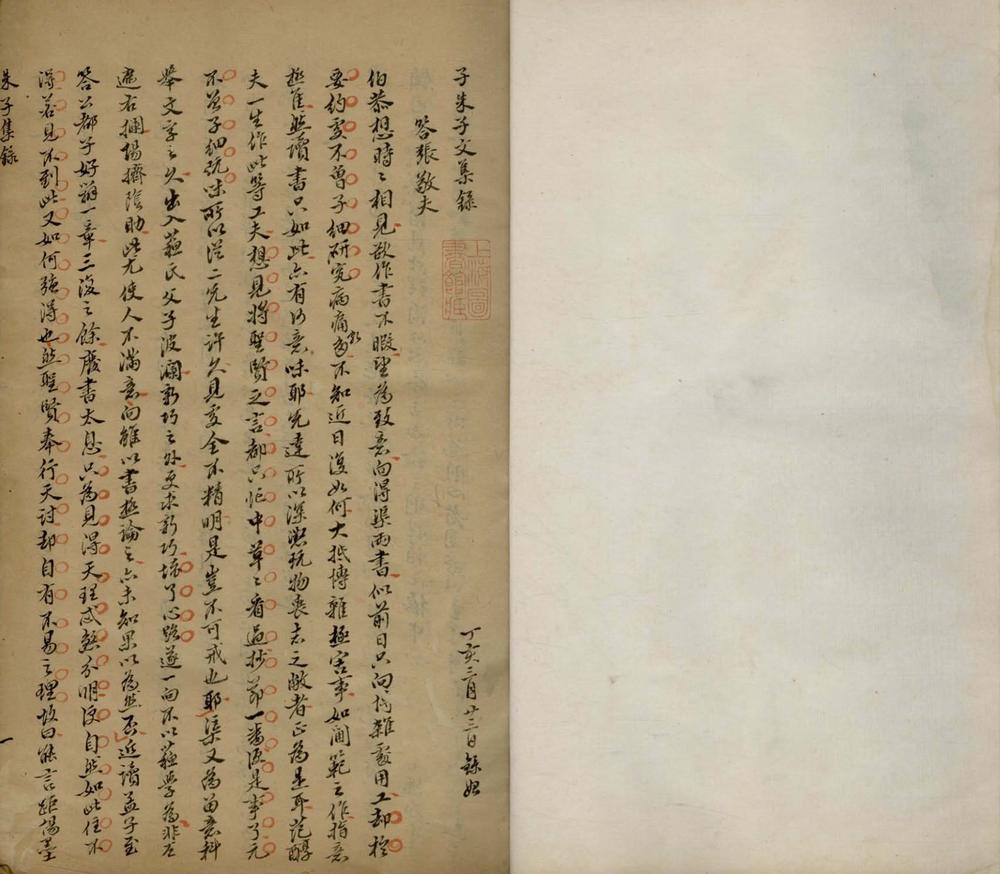 子朱子文集錄
丁亥三月廿三日錄起
答張敬夫
上海圖書館藏
伯恭想時〻相見欲作書不暇望為致意向得渠兩書似前日只向博雜處用工却於
要約處不曾子細研究病痛頗多不知近日復如何大抵博雜極害事如閫範之作指意
極佳然讀書只如此亦有何意味耶先達所以深懲玩物喪志之敝者正為是耳范醇
夫一生作此等工夫想見將聖賢之言都只忙中草〻看過抄節一番便是事了元
不曾子細玩味所以從二先生許久見處全不精明是豈不可戒也耶渠又為留意科
舉文字之久出入蘇氏父子波瀾新巧之外更求新巧壞了心路遂一向不以蘇學為非左
遮右攔陽擠陰助此尤使人不滿意向雖以書極論之亦未知果以為然否近讀孟子至
答公都子好辯一章三復之餘廢書太息只為見得天理忒煞分明便自然如此住不
得若見不到此又如何強得也然聖賢奉行天討却自有不易之理故曰能言距楊墨
朱子集錄
一